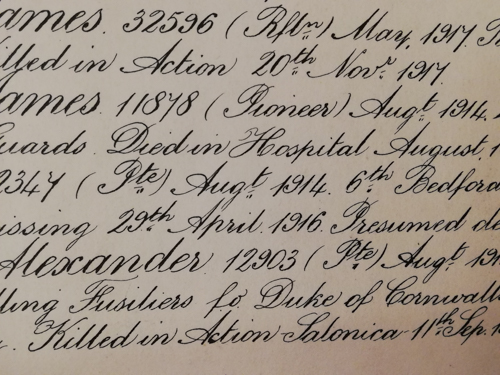 ames. 32596 (Rfln) May, 1917.
lled in Action 20th Novr. 1917.
ames 11878 (Pioneer) Augt. 1914.
Guards. Died in Hospital August,
2347 (Pte) Augt. 1914. 6th Bedford
issing 29th April. 1916. Presumed de
Alexander 12903 (Pte) Augt. 191
lling Fusiliers fo Duke of Cornwall
Killed in Action Salonica 11th Sep. 1